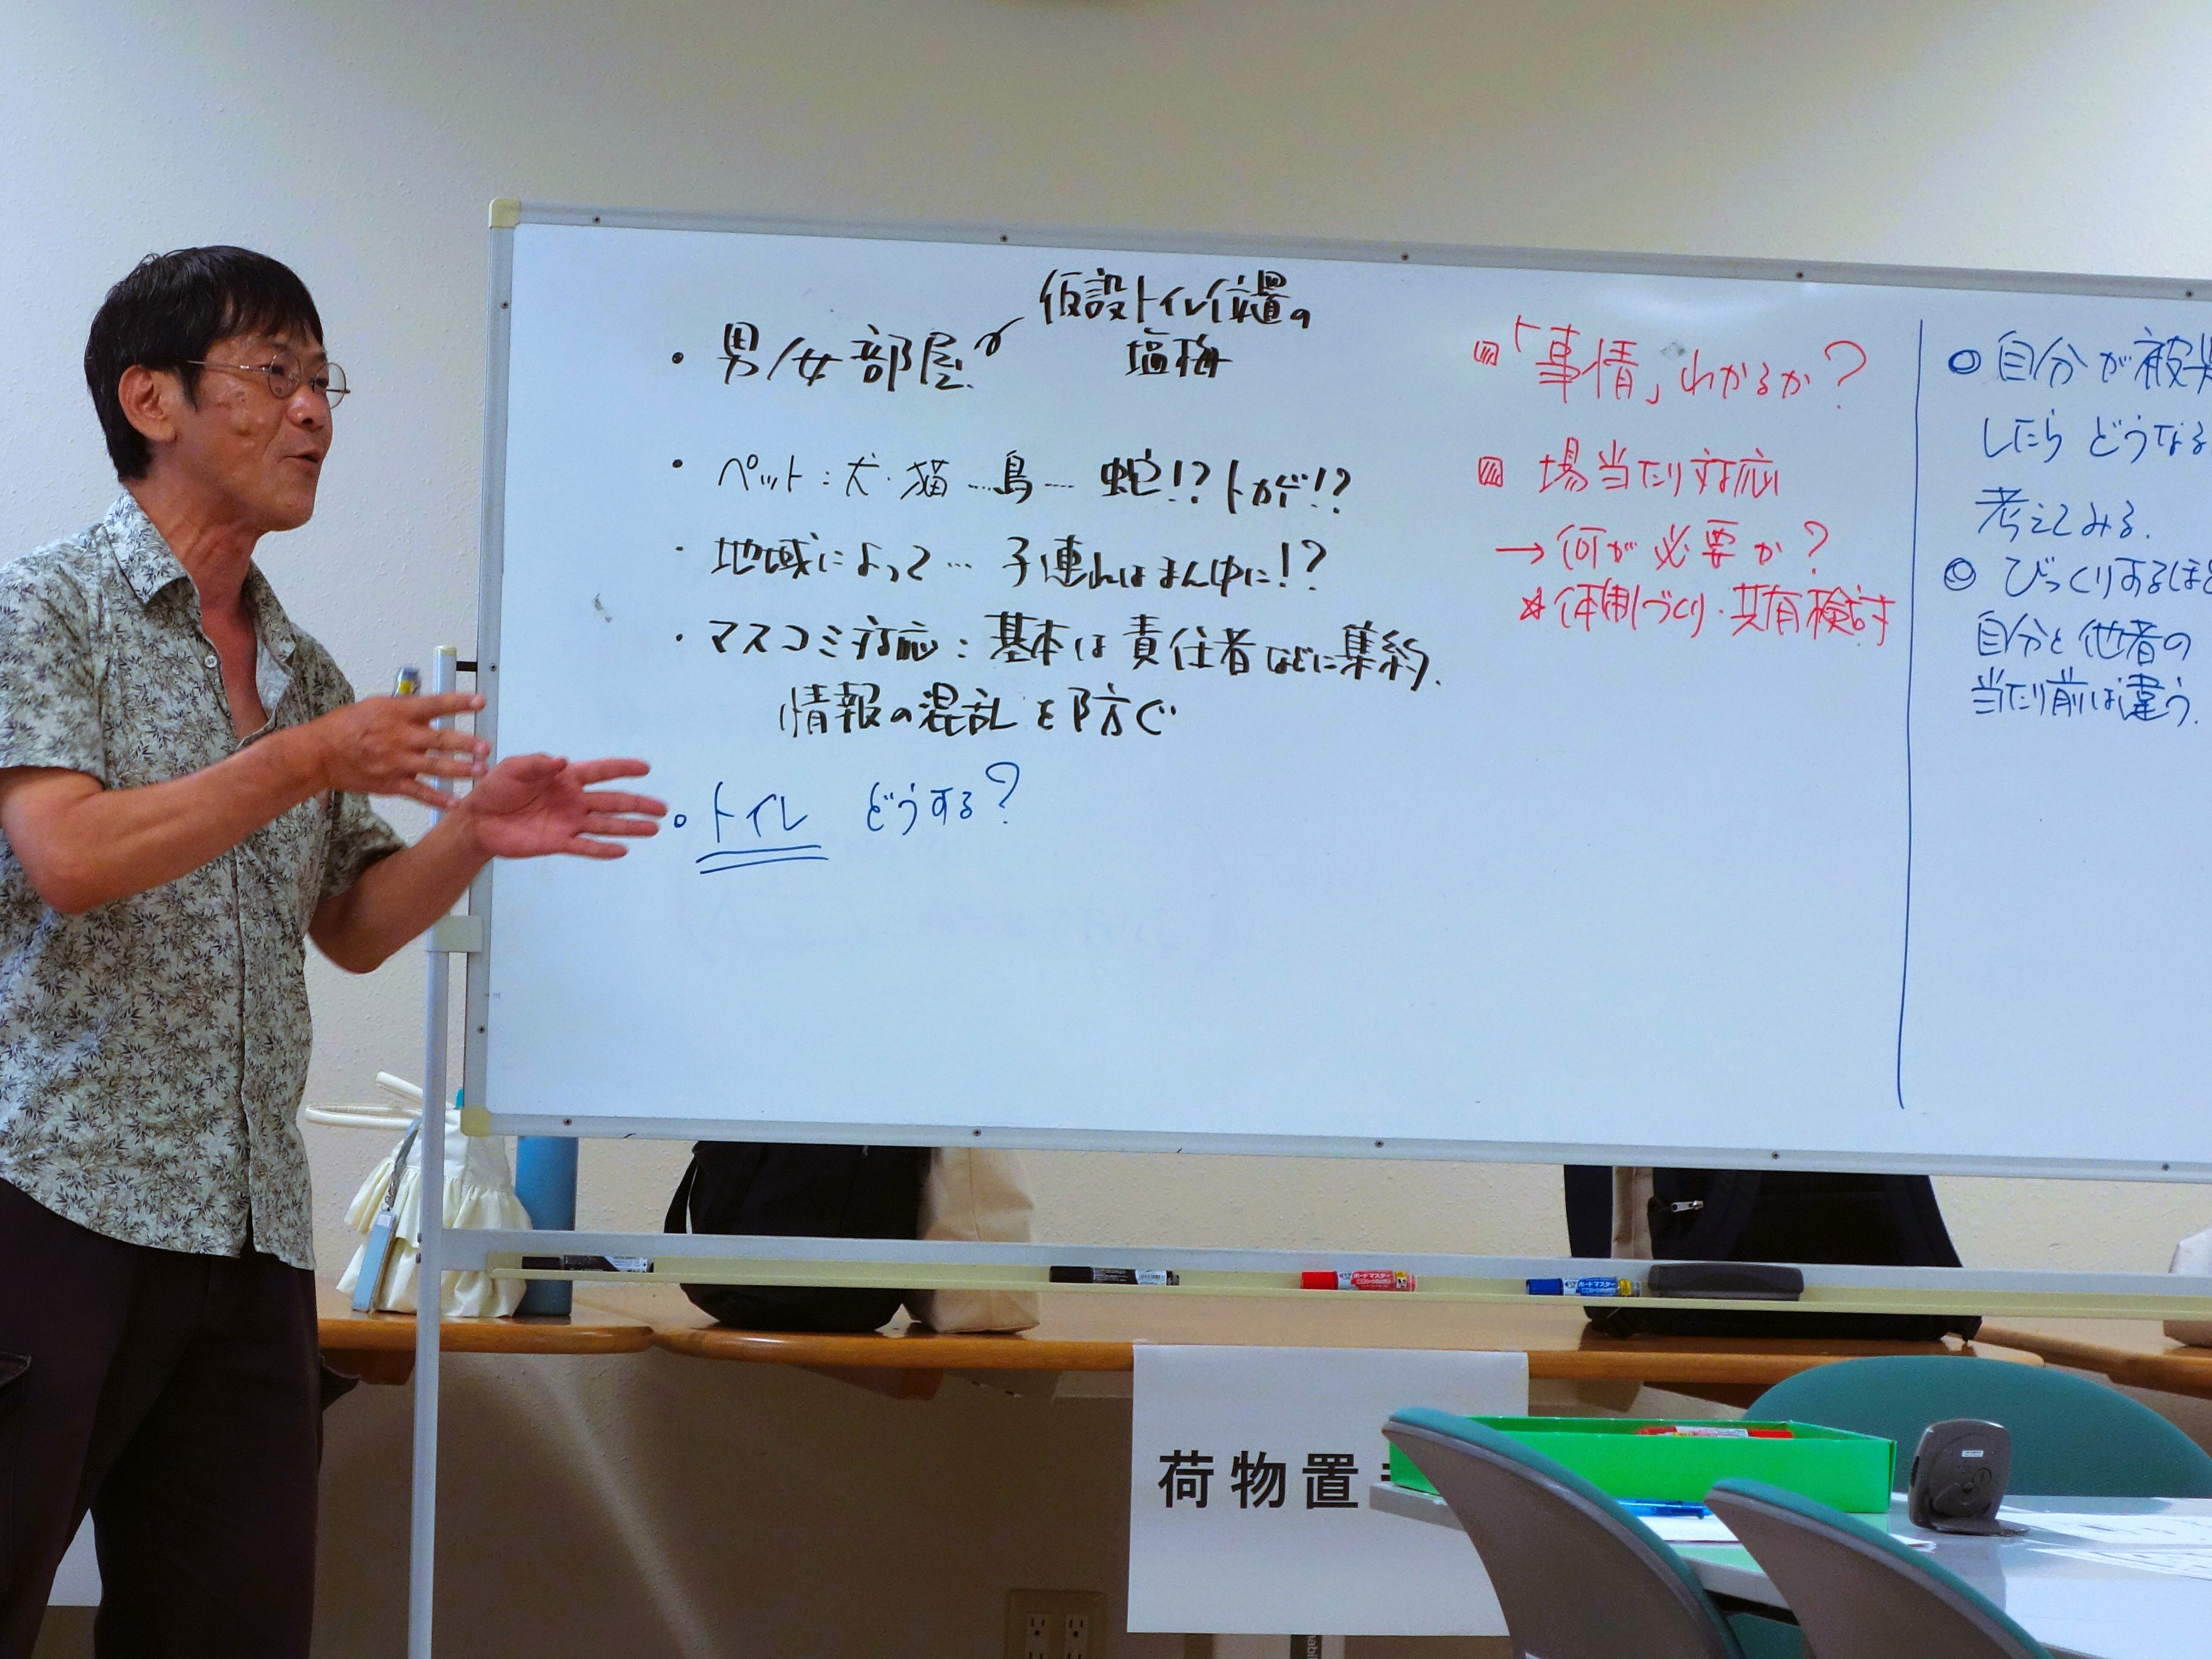 仮設トイレ位置の
塩梅
・男/女部屋
・ペット:犬・猫…鳥…蛇!?トカゲ!?
・地域によって…子連れはまん中に!?
・マスコミ対応:基本は責任者などに集約.
情報の混乱を防ぐ
。トイレ どうする?
「事情」わかるか?
場当たり対応
→何が必要か?
☆体制づくり・共有検討
◎自分が被災
したらどうなる
考えてみる.
◎びっくりするほど
自分と他者の
当たり前は違う.
ボードマスター
荷物置